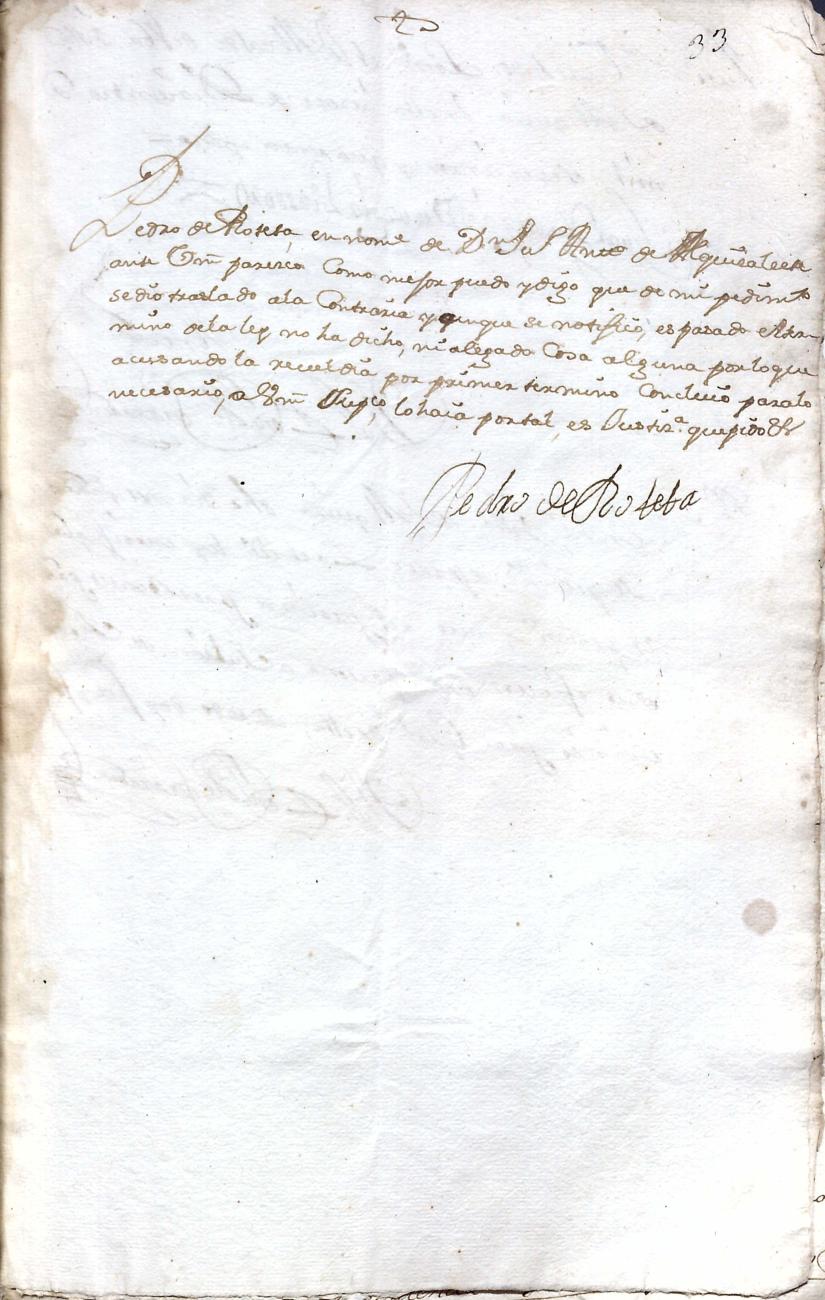 33
Pedro de Roteta, en nomᵉ de Dⁿ Juˢ Antᵒ de
ante Vm paresco Como mejor puedo y digo que de mi pedimᵗᵒ
se dio traslado a la Contraria y aunque se notificó, es pasado el ter-
mino de la ley no ha dicho, ni alegado Cosa alguna por lo que
acusando la rebeldia por primer termino Concluio para lo
necesario, a Vm Supᶜᵒ, lo haia por tal, es Justizᵃ que pido &
Pedro de Roteta